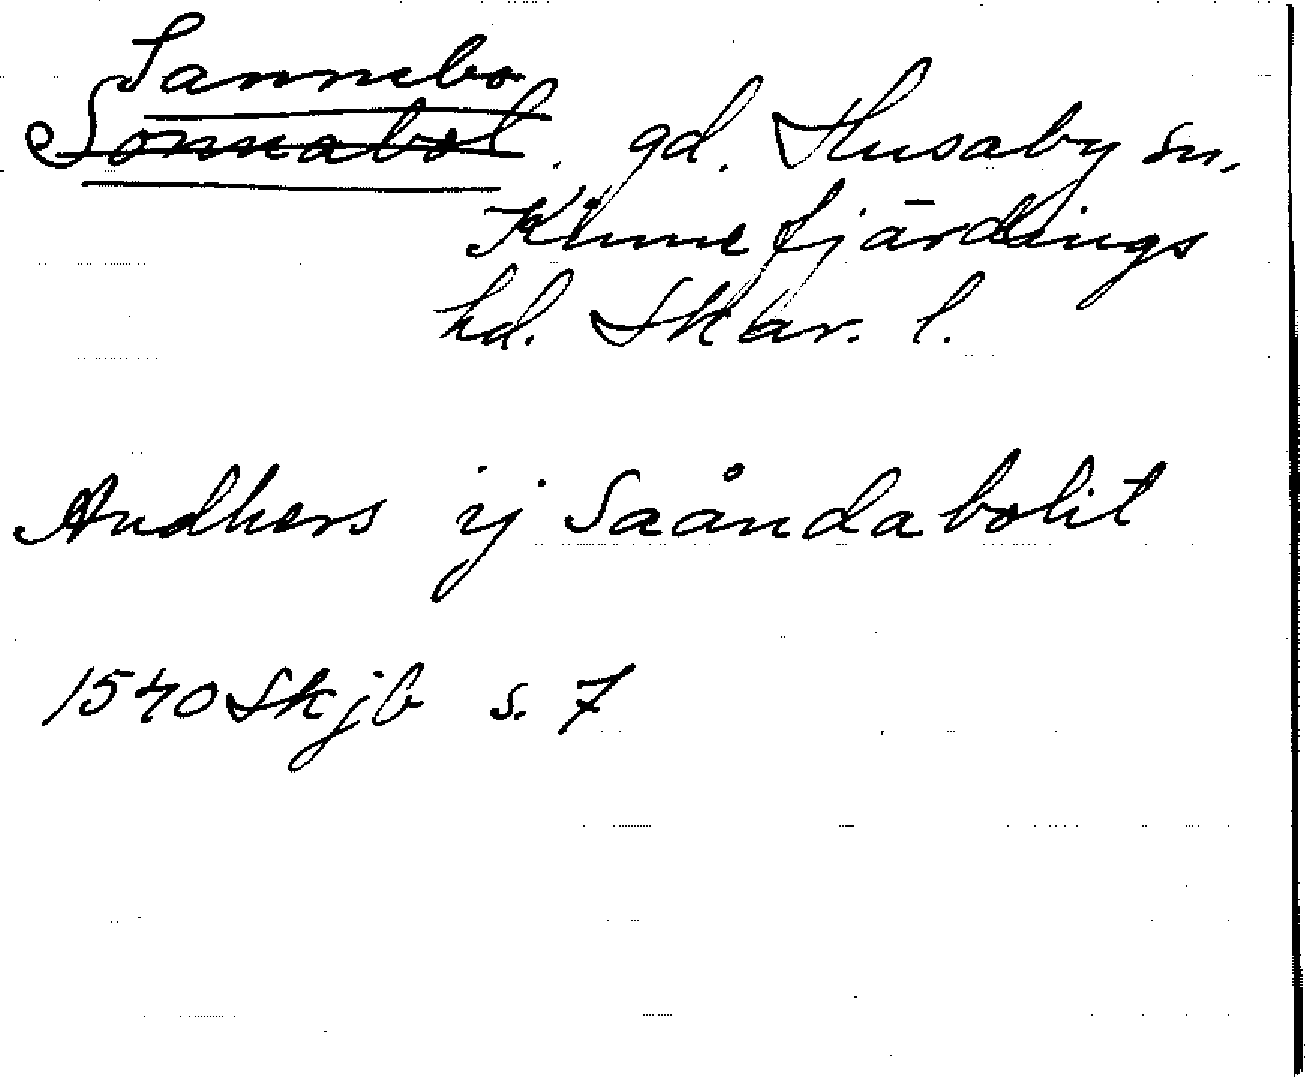 Sannebo
Sonnabol. gd. Husaby sn,
Kinne fjärdings
hd. Skar. l.
Andhers ij Saåndabolit
1540 Skjb s. 7